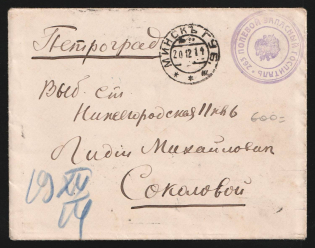 Петроград
МИНСКЪ ГУБ.
20 12 14
263 ПОЛЕВОЙ ЗАПАСНЫЙ ГОСПИТАЛЬ
Выб. ст
Нижегородская 11 кв 6
600=
Лидіи Михайловн
Соколовой
19 XII
14